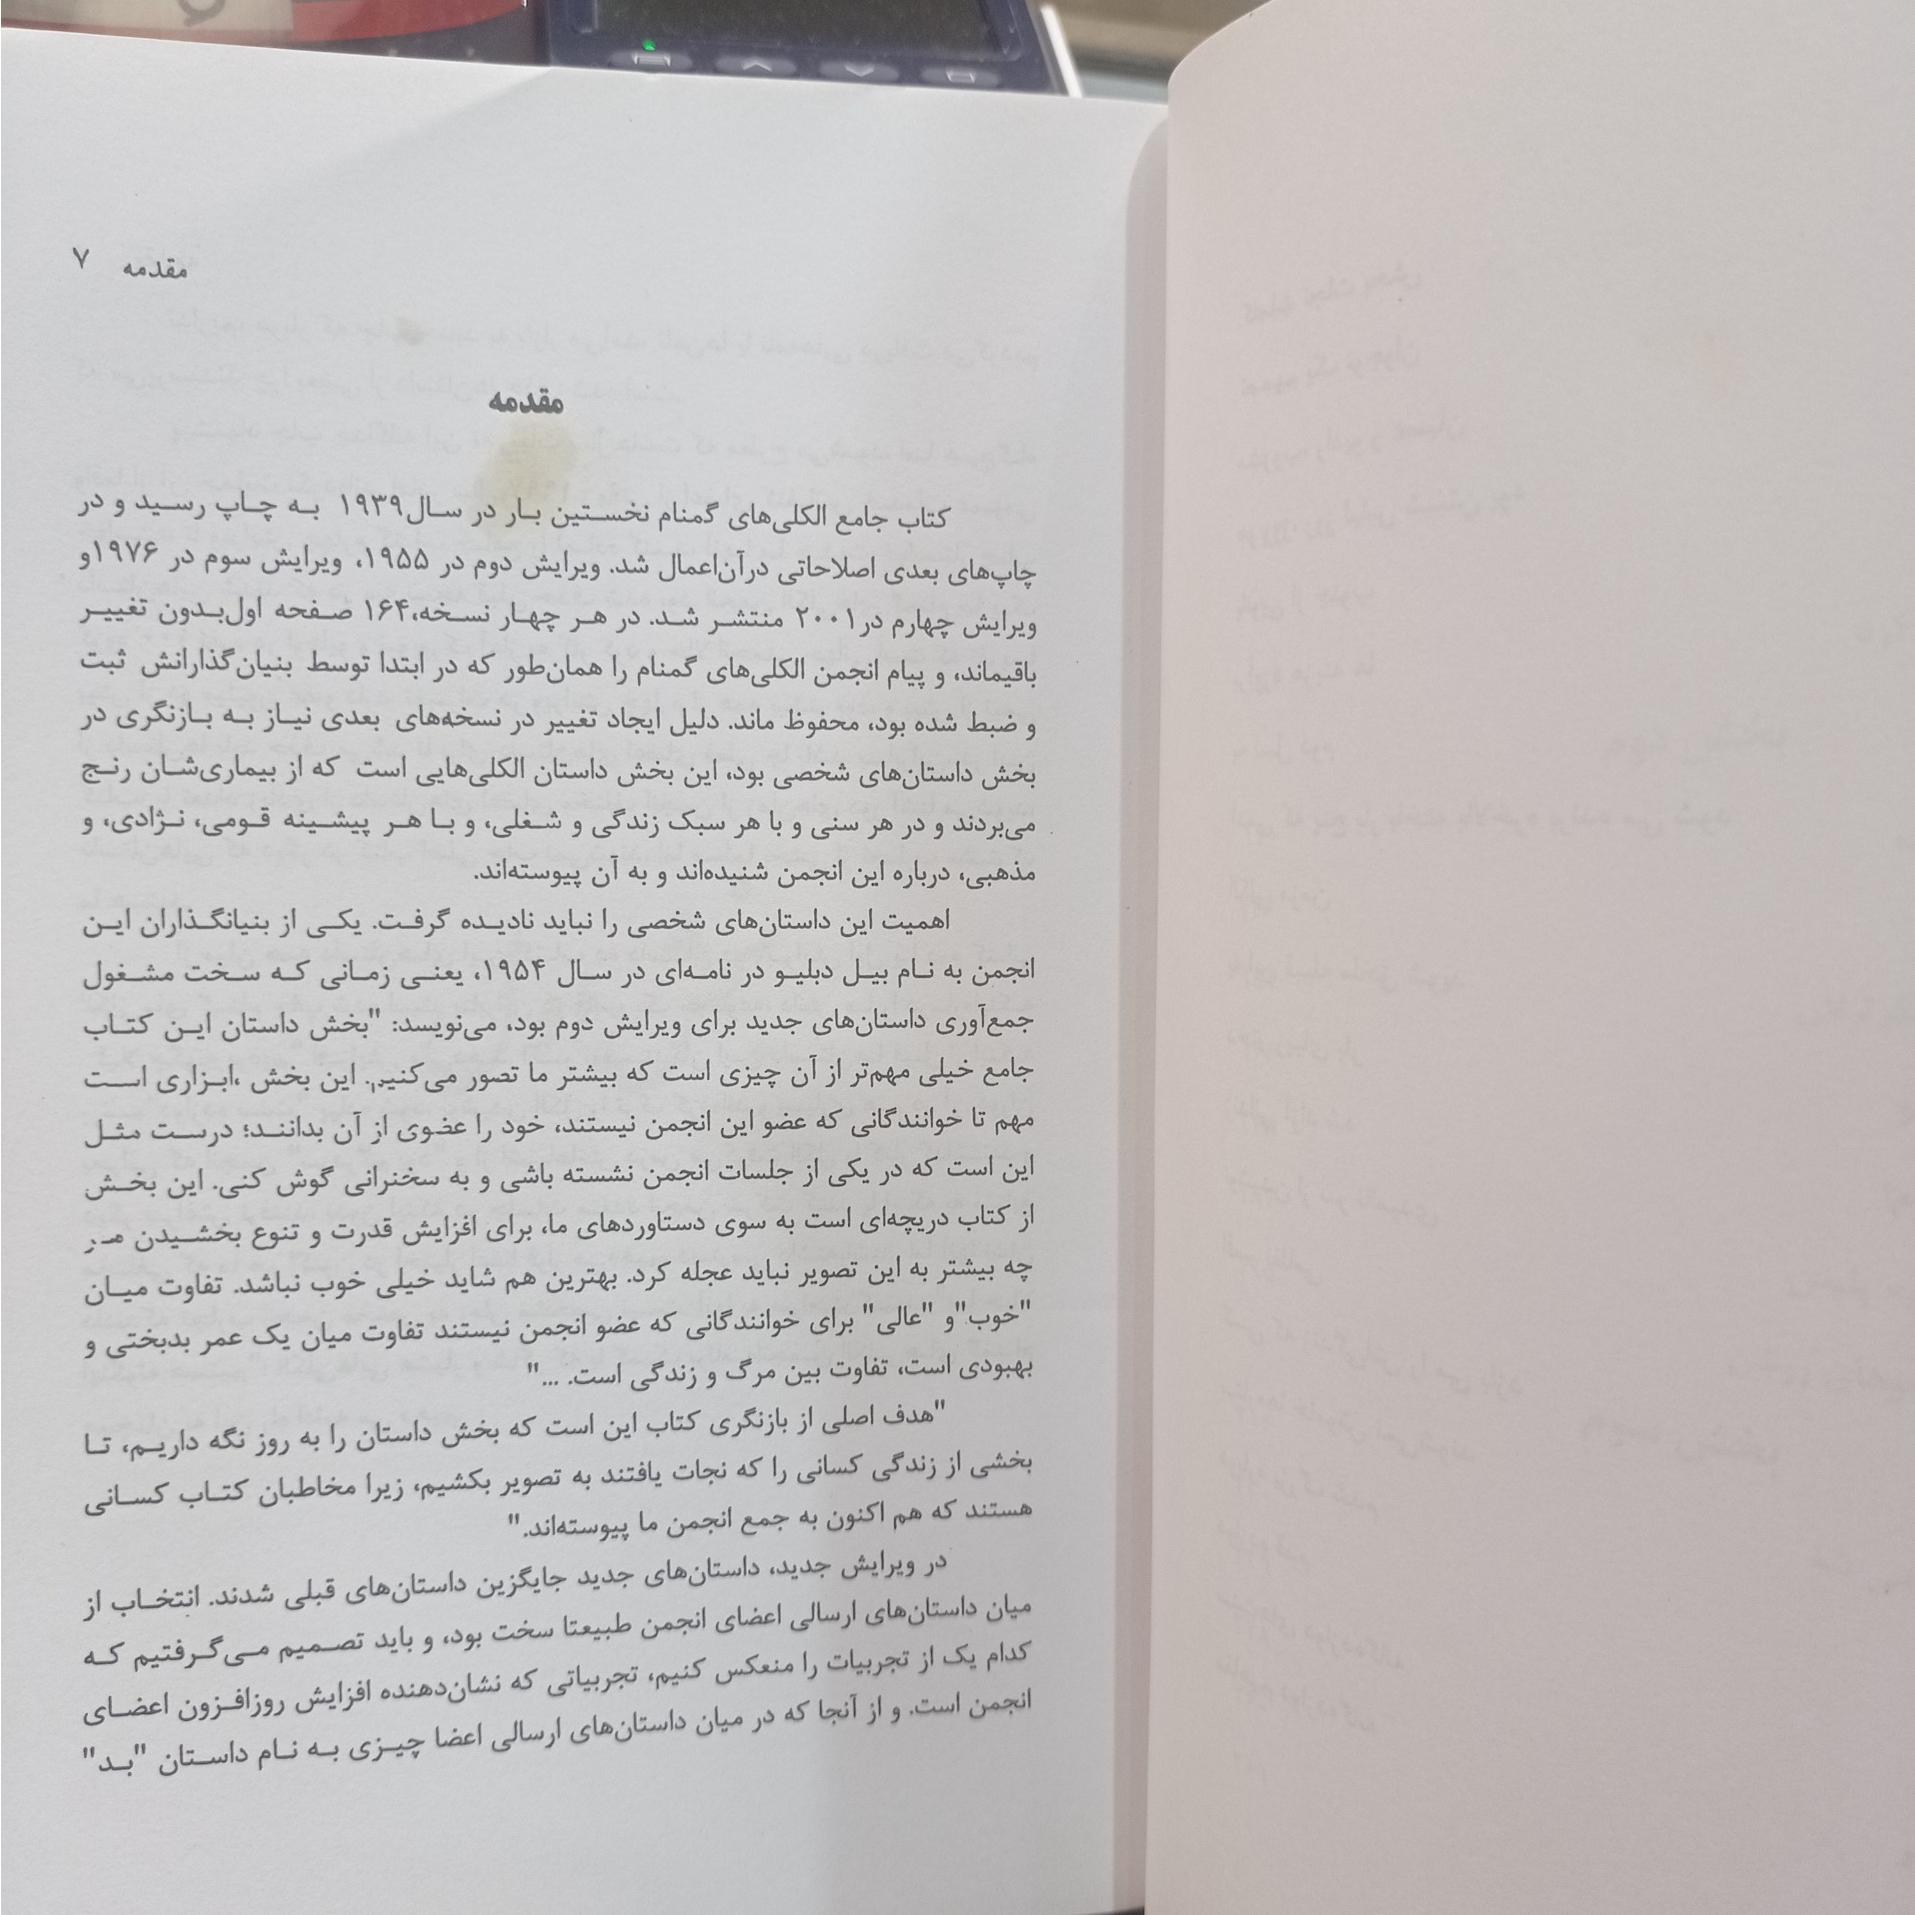 مقدمه ۷
مقدمه
کتاب جامع الکلی‌های گمنام نخستین بار در سال۱۹۳۹ به چاپ رسید و در
چاپ‌های بعدی اصلاحاتی درآن‌اعمال شد. ویرایش دوم در ۱۹۵۵، ویرایش سوم در ۱۹۷۶و
ویرایش چهارم در۲۰۰۱ منتشر شد. در هر چهار نسخه،۱۶۴ صفحه اول‌بدون تغییر
باقیماند، و پیام انجمن الکلی‌های گمنام را همان‌طور که در ابتدا توسط بنیان‌گذارانش ثبت
و ضبط شده بود، محفوظ ماند. دلیل ایجاد تغییر در نسخه‌های بعدی نیاز به بازنگری در
بخش داستان‌های شخصی بود، این بخش داستان الکلی‌هایی است که از بیماری‌شان رنج
می‌بردند و در هر سنی و با هر سبک زندگی و شغلی، و با هر پیشینه قومی، نژادی، و
مذهبی، درباره این انجمن شنیده‌اند و به آن پیوسته‌اند.
اهمیت این داستان‌های شخصی را نباید نادیده گرفت. یکی از بنیانگذاران این
انجمن به نام بیل دبلیو در نامه‌ای در سال ۱۹۵۴، یعنی زمانی که سخت مشغول
جمع‌آوری داستان‌های جدید برای ویرایش دوم بود، می‌نویسد: "بخش داستان این کتاب
جامع خیلی مهم‌تر از آن چیزی است که بیشتر ما تصور می‌کنیم. این بخش ،ابزاری است
مهم تا خوانندگانی که عضو این انجمن نیستند، خود را عضوی از آن بدانند؛ درست مثل
این است که در یکی از جلسات انجمن نشسته باشی و به سخنرانی گوش کنی. این بخش
از کتاب دریچه‌ای است به سوی دستاوردهای ما، برای افزایش قدرت و تنوع بخشیدن هر
چه بیشتر به این تصویر نباید عجله کرد. بهترین هم شاید خیلی خوب نباشد. تفاوت میان
"خوب"و "عالی" برای خوانندگانی که عضو انجمن نیستند تفاوت میان یک عمر بدبختی و
بهبودی است، تفاوت بین مرگ و زندگی است. ..."
"هدف اصلی از بازنگری کتاب این است که بخش داستان را به روز نگه داریم، تا
بخشی از زندگی کسانی را که نجات یافتند به تصویر بکشیم، زیرا مخاطبان کتاب کسانی
هستند که هم اکنون به جمع انجمن ما پیوسته‌اند."
در ویرایش جدید، داستان‌های جدید جایگزین داستان‌های قبلی شدند. انتخاب از
میان داستان‌های ارسالی اعضای انجمن طبیعتا سخت بود، و باید تصمیم می‌گرفتیم که
کدام یک از تجربیات را منعکس کنیم، تجربیاتی که نشان‌دهنده افزایش روزافزون اعضای
انجمن است. و از آنجا که در میان داستان‌های ارسالی اعضا چیزی به نام داستان "بد"